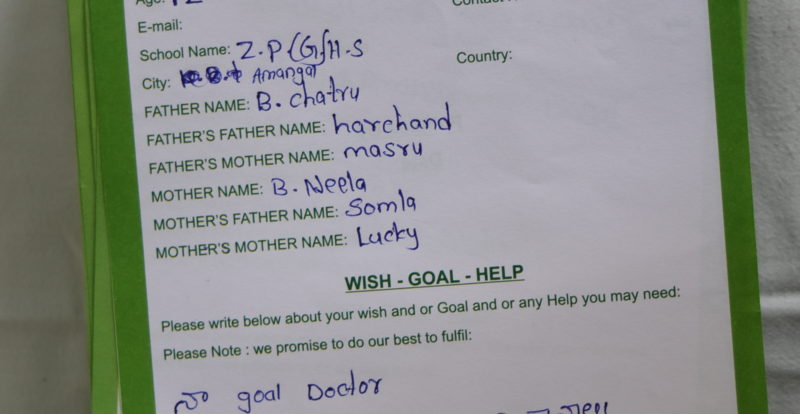 Age: 12
E-mail:
School Name: Z.P(G)H.S
Country:
City: Amangal
FATHER NAME: B. chatru
FATHER'S FATHER NAME: harchand
FATHER'S MOTHER NAME: masru
MOTHER NAME: B. Neela
MOTHER'S FATHER NAME: Somla
MOTHER'S MOTHER NAME: Lucky
WISH - GOAL - HELP
Please write below about your wish and or Goal and or any Help you may need:
Please Note : we promise to do our best to fulfil:
నా goal Doctor